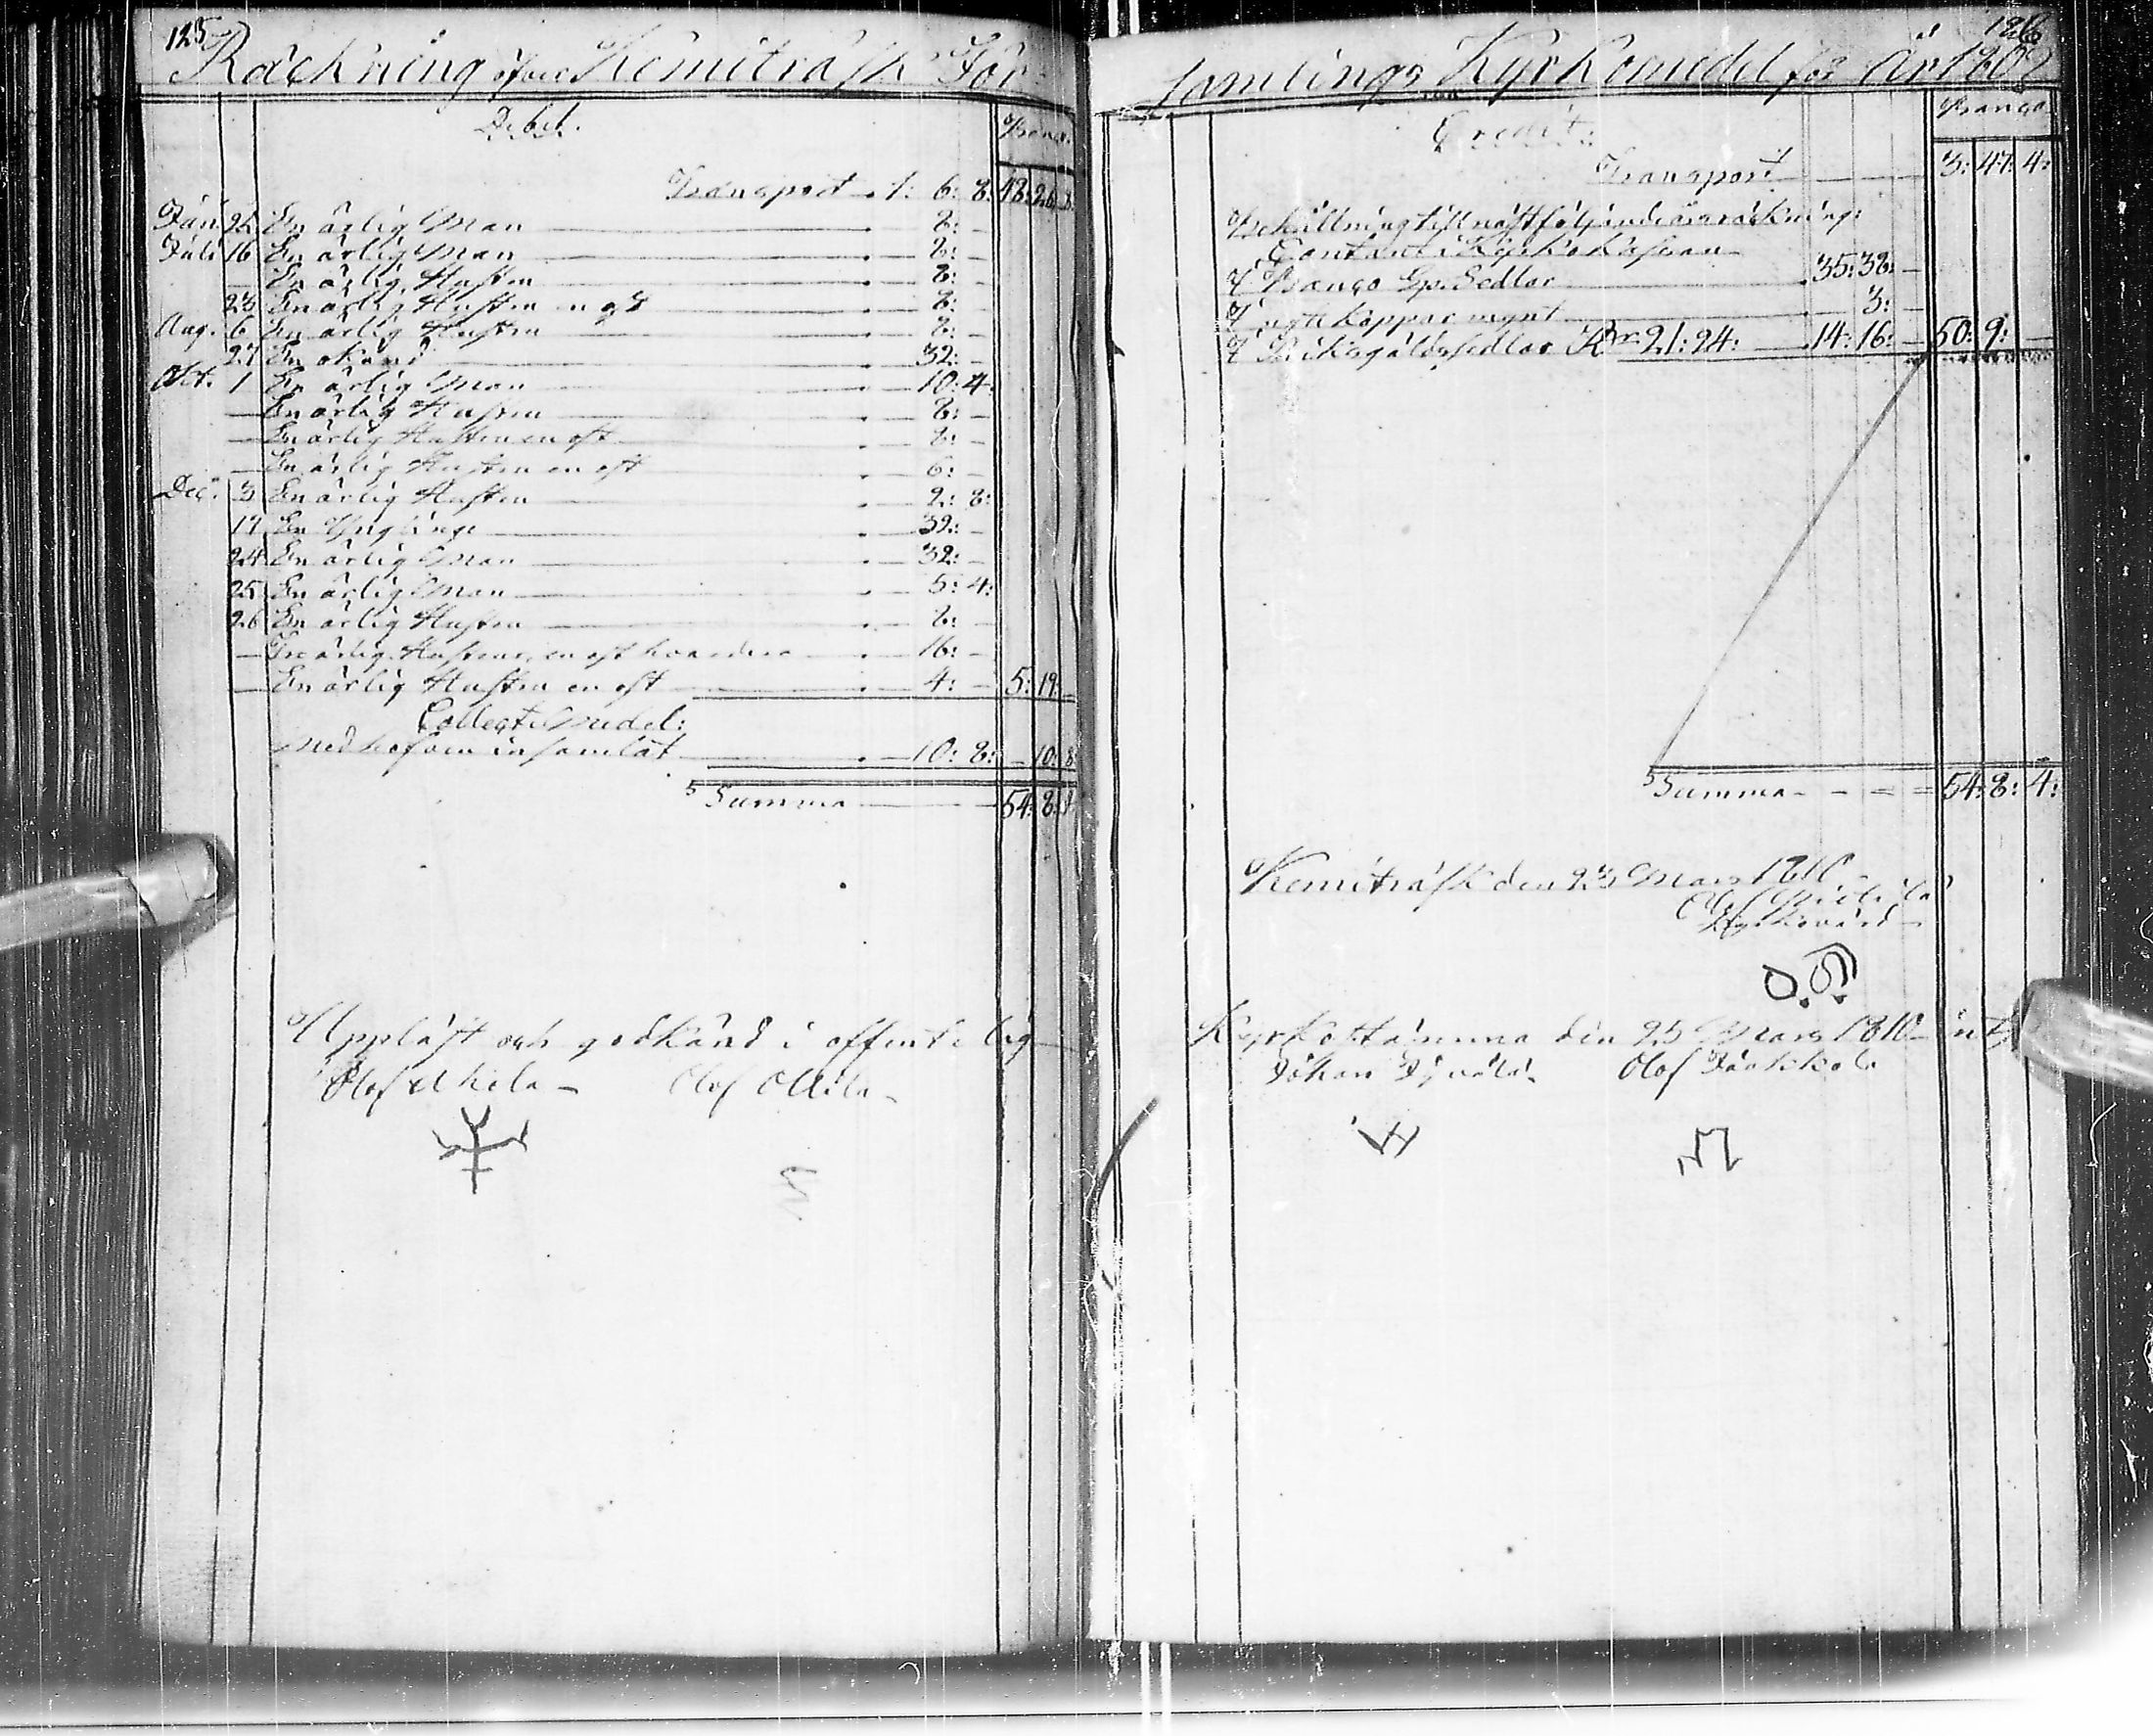 125
Räckning öfver Kemiträsk För
Debet.
Banco.
Transport 1: 6: 8: 48: 26: 8:
Jun 25 En ärlig Man 8: –
Juli 16 En ärlig Man 8: –
– En ärlig Hustru 8: –
23 En ärlig Hustru 8: –
Aug. 6 En ärlig Hustru 8: –
27 En okänd 32: –
Oct. 1 En ärlig Man 10: 4:
– En ärlig Hustru 8: –
– En ärlig Hustru en ost 8: –
– En ärlig Hustru en ost 6: –
Dec. 3 En ärlig Hustru 2: 8:
17 En Yngling 32: –
24 En ärlig Man 32: –
25 En ärlig Man 5: 4:
26 En ärlig Hustru 8: –
– Tre ärlig. Hustrur, en ost hvardera 16: –
– En ärlig Hustru en ost 4: – 5: 19: –
Collect Medel:
Med hofven insamlat 10: 8: – 10: 8:
Summa 54: 8: 4:
Uppläst och godkänd i offentelig
Olof Ollila
126
samlings Kyrkomedel för År 1809
Credit:
Banco
Transport 3: 47: 4:
Behållning till nästföljande års räckning:
Contant i Kyrko Kassan
I Banco Sp. Sedlar 35: 38: –
I nytt koppar mynt 3: –
I Riksgäldssedlar Rdr 21: 24: 14: 16: – 50: 9: –
Summa 54: 8: 4:
Kemiträsk den 23 Mars 1810
Olof
Kyrkovärd
Kyrkostämma den 25 Mars 1810
Johan Olof Jaakkola